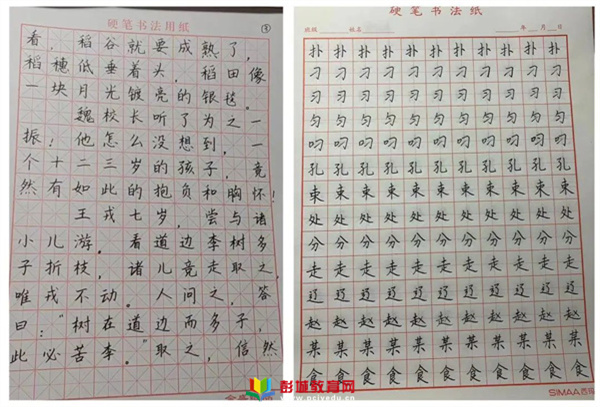 硬笔书法用纸
看，稻谷就要成熟了，
稻穗低垂着头，稻田像
一块月光镀亮的银毯。
魏校长听了为之一
振！他怎么没想到，一
个十二三岁的孩子，竟
然有如此的抱负和胸怀！
王戎七岁，尝与诸
小儿游。看道边李树多
子折枝，诸儿竞走取之，
唯戎不动。人问之，答
曰：“树在道边而多子，
此必苦李。”取之，信然
硬笔书法纸
班级 姓名 年 月 日
扑 扑 扑 扑 扑 扑 扑 扑 扑 扑 扑
刁 刁 刁 刁 刁 刁 刁 刁 刁 刁 刁
习 习 习 习 习 习 习 习 习 习 习
匀 匀 匀 匀 匀 匀 匀 匀 匀 匀 匀
叨 叨 叨 叨 叨 叨 叨 叨 叨 叨 叨
孔 孔 孔 孔 孔 孔 孔 孔 孔 孔 孔
束 束 束 束 束 束 束 束 束 束 束
处 处 处 处 处 处 处 处 处 处 处
分 分 分 分 分 分 分 分 分 分 分
走 走 走 走 走 走 走 走 走 走 走
辽 辽 辽 辽 辽 辽 辽 辽 辽 辽 辽
赵 赵 赵 赵 赵 赵 赵 赵 赵 赵 赵
某 某 某 某 某 某 某 某 某 某 某
食 食 食 食 食 食 食 食 食 食 食
SIMAA
彭城教育网
www.pcjyedu.com